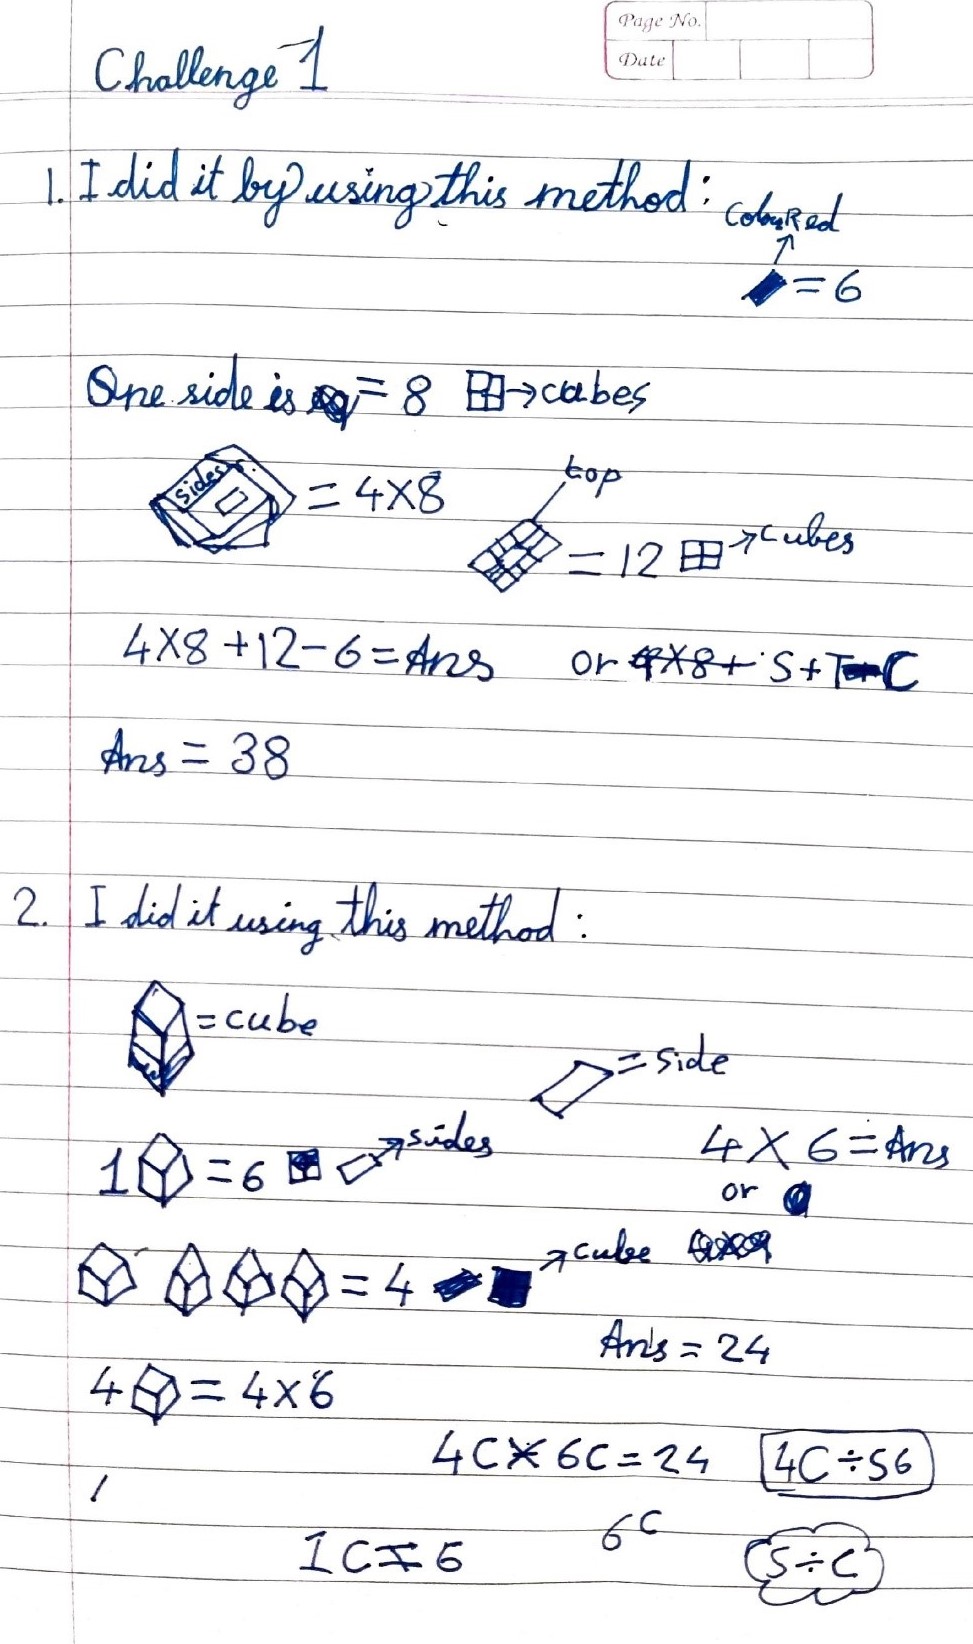 Page No.
Date
Challenge 1
1. I did it by using this method:
Coloured
= 6
One side is = 8 → cubes
sides = 4×8
top
= 12 → cubes
4×8+12-6=Ans or S+T-C
Ans = 38
2. I did it using this method:
= cube
= side
1 = 6 → sides
4 × 6 = Ans
or
= 4 → cube
Ans = 24
4 = 4×6
4C × 6C = 24 4C÷S6
6C
1C = 6
S÷C